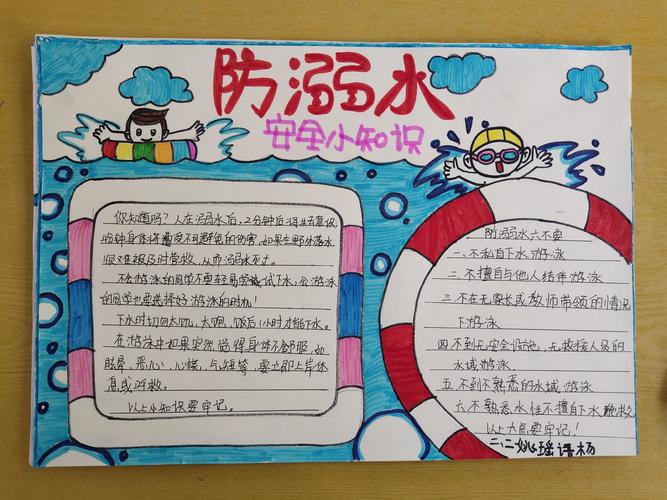 防溺水
安全小知识
你知道吗？人在溺水后，2分钟后将失去意识
4分钟身体将遭受不可避免的伤害，如果在野外落水
很难被及时营救，从而溺水死亡。
不会游泳的同学不要轻易尝试下水，会游泳
的同学也要选择好游泳的时机！
下水时切勿太饥、太饱，饭后1小时才能下水。
在游泳中如果突然觉得身体不舒服，如
眩晕、恶心、心慌、气短等，要立即上岸休
息或呼救。
以上小知识要牢记。
防溺水六不要
一、不私自下水游泳
二、不擅自与他人结伴游泳
三、不在无家长或教师带领的情况
下游泳
四、不到无安全设施，无救援人员的
水域游泳
五、不到不熟悉的水域游泳
六、不熟悉水性不擅自下水施救
以上六点要牢记！
二、二姚瑶语杨